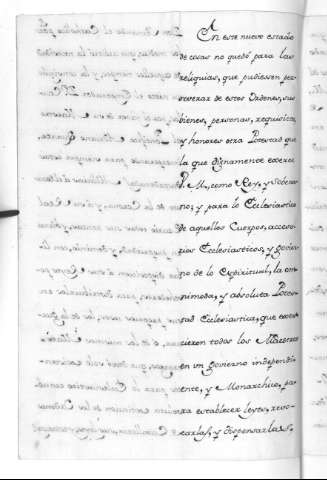 En este nuevo estado
de cosas no quedó para las
reliquias, que pudiessen per-
severar de estos Ordenes, sus
bienes, personas, requisitos,
y honores otra Potestad que
la que dignamente exerce
V. M., como Rey, y Sobera-
no; y para lo Ecclesiastico
de aquellos Cuerpos, acceso-
rios Ecclesiasticos, y govier-
no de lo Espiritual, la om-
nimoda, y absoluta Potes-
tad Ecclesiastica, que exer-
cieron todos los Maestres
en un govierno independi-
ente, y Monarchico, pa-
ra establecer leyes, revo-
carlas, y dispensarlas,